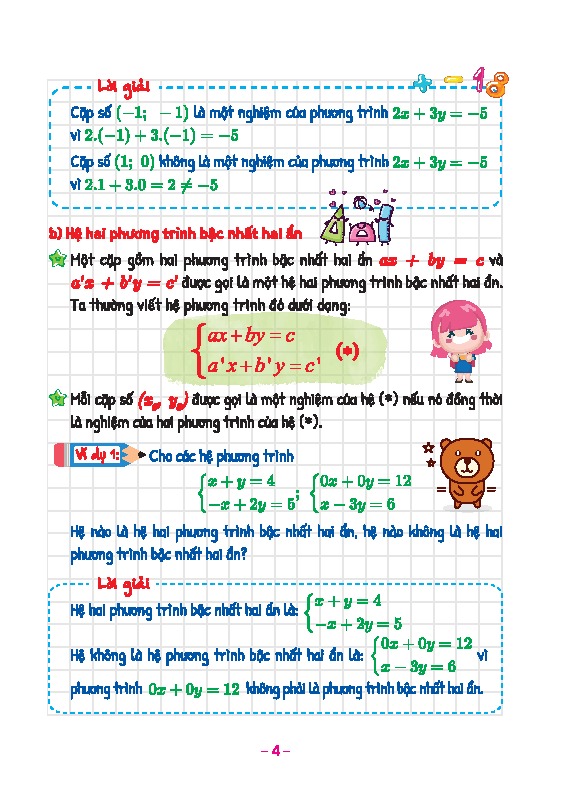 Lời giải
Cặp số (−1; −1) là một nghiệm của phương trình 2x + 3y = −5
vì 2.(−1) + 3.(−1) = −5
Cặp số (1; 0) không là một nghiệm của phương trình 2x + 3y = −5
vì 2.1 + 3.0 = 2 ≠ −5
b) Hệ hai phương trình bậc nhất hai ẩn
Một cặp gồm hai phương trình bậc nhất hai ẩn ax + by = c và
a'x + b'y = c' được gọi là một hệ hai phương trình bậc nhất hai ẩn.
Ta thường viết hệ phương trình đó dưới dạng:
{ax + by = c
a'x + b'y = c' (*)
Mỗi cặp số (x₀, y₀) được gọi là một nghiệm của hệ (*) nếu nó đồng thời
là nghiệm của hai phương trình của hệ (*).
Ví dụ 1: Cho các hệ phương trình
{x + y = 4 {0x + 0y = 12
−x + 2y = 5; x − 3y = 6
Hệ nào là hệ hai phương trình bậc nhất hai ẩn, hệ nào không là hệ hai
phương trình bậc nhất hai ẩn?
Lời giải
Hệ hai phương trình bậc nhất hai ẩn là: {x + y = 4
−x + 2y = 5
Hệ không là hệ phương trình bậc nhất hai ẩn là: {0x + 0y = 12
x − 3y = 6 vì
phương trình 0x + 0y = 12 không phải là phương trình bậc nhất hai ẩn.
– 4 –